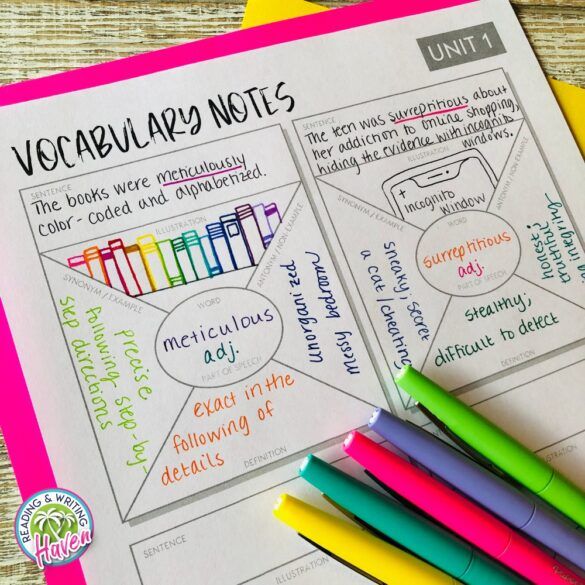 UNIT 1
VOCABULARY NOTES
SENTENCE
The books were meticulously
color-coded and alphabetized.
ILLUSTRATION
SYNONYM / EXAMPLE
precise
following step-by-
step directions
WORD
meticulous
adj.
PART OF SPEECH
ANTONYM / NON-EXAMPLE
unorganized
messy bedroom
exact in the
following of
details
DEFINITION
SENTENCE
The teen was surreptitious about
her addiction to online shopping,
hiding the evidence with incognito
windows.
ILLUSTRATION
+
incognito
window
SYNONYM / EXAMPLE
sneaky, secret
a cat / cheating
WORD
surreptitious
adj.
PART OF SPEECH
ANTONYM / NON-EXAMPLE
honest;
truthful;
stealthy;
difficult to detect
DEFINITION
SENTENCE
READING & WRITING
Haven